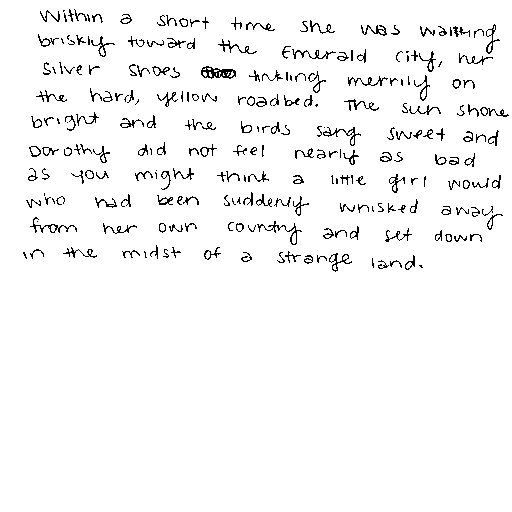 Within a short time she was walking
briskly toward the Emerald City, her
Silver Shoes tinkling merrily on
the hard, yellow roadbed. The sun shone
bright and the birds sang sweet and
Dorothy did not feel nearly as bad
as you might think a little girl would
who had been suddenly whisked away
from her own country and set down
in the midst of a strange land.